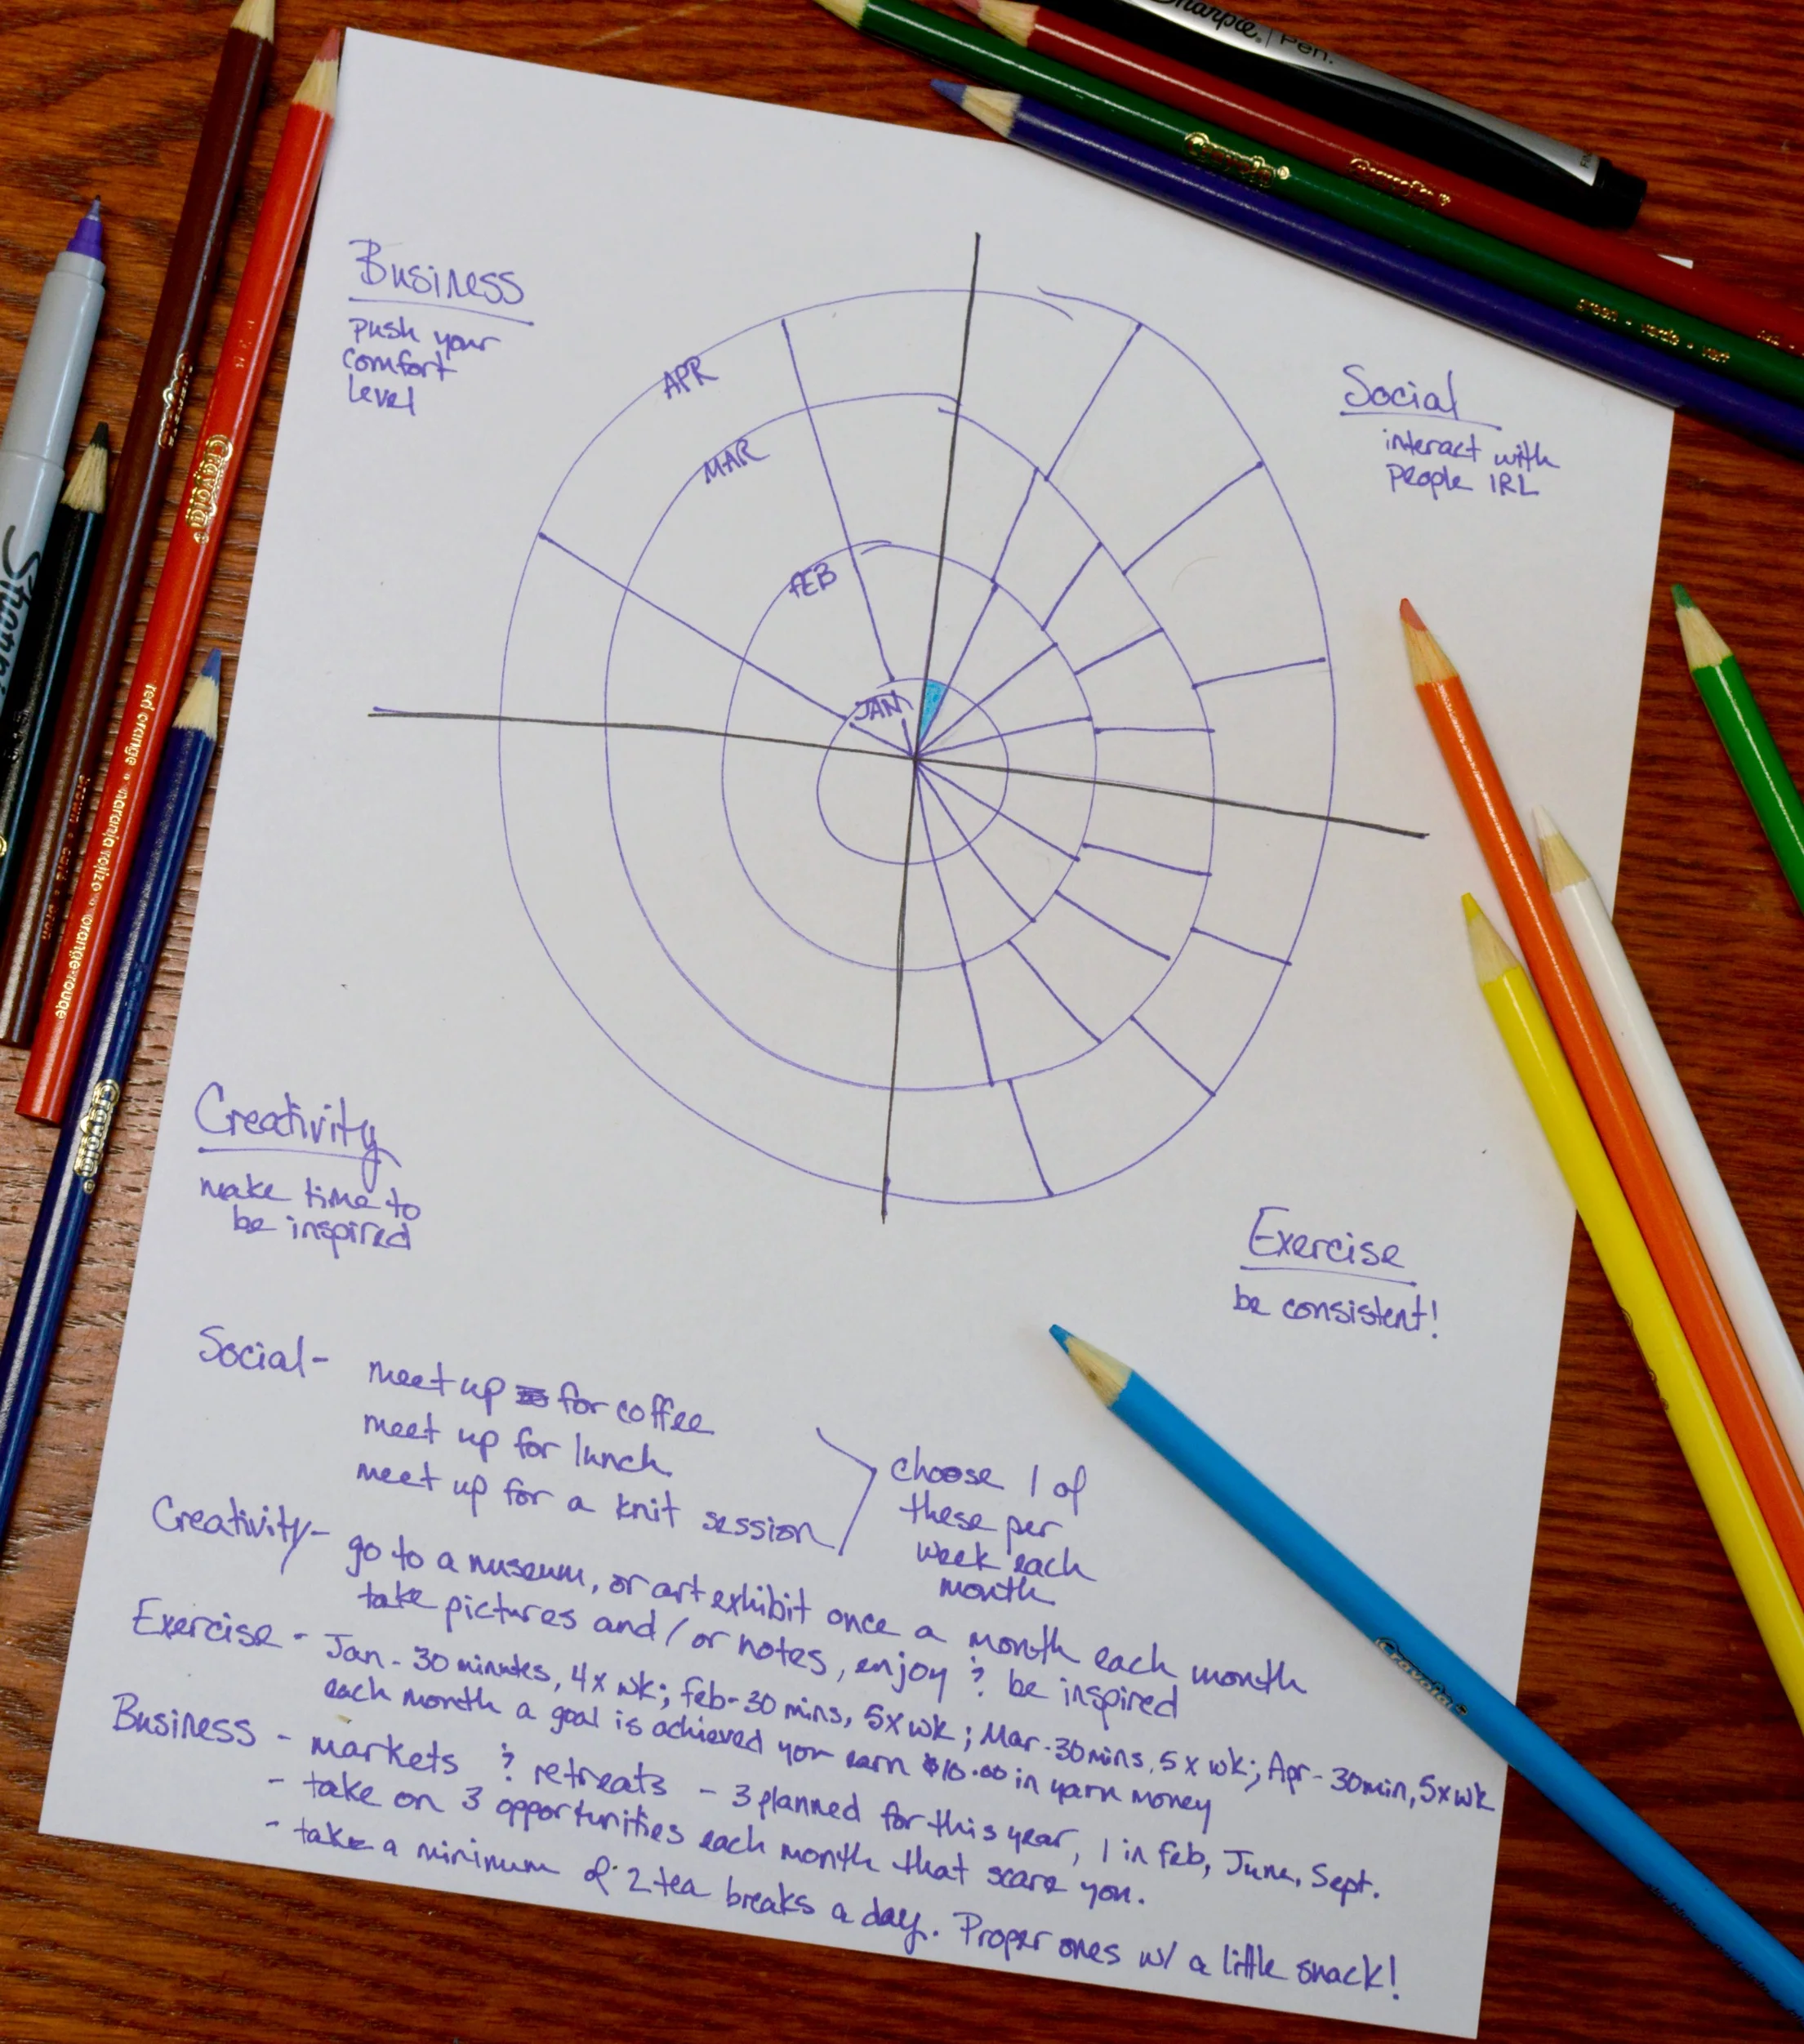 Sharpie. Pen.
Crayola®
Crayola
green • verde • vert
Business
push your
comfort
level
Social
interact with
people IRL
APR
MAR
FEB
JAN
Crayola
Crayola
Sharpie
red orange • naranja rojizo • orange-rouge
Crayola
Creativity
make time to
be inspired
Exercise
be consistent!
Social- meet up for coffee
meet up for lunch
meet up for a knit session
choose 1 of
these per
week each
month
Creativity- go to a museum, or art exhibit once a month each month
take pictures and/or notes, enjoy & be inspired
Exercise - Jan - 30 minutes, 4x wk; feb- 30 mins, 5x wk; Mar - 30 mins, 5 x wk; Apr- 30min, 5x wk
each month a goal is achieved you earn $10.00 in yarn money
Business - markets & retreats - 3 planned for this year, 1 in feb, June, Sept.
- take on 3 opportunities each month that scare you.
- take a minimum of 2 tea breaks a day. Proper ones w/ a little snack!
Crayola